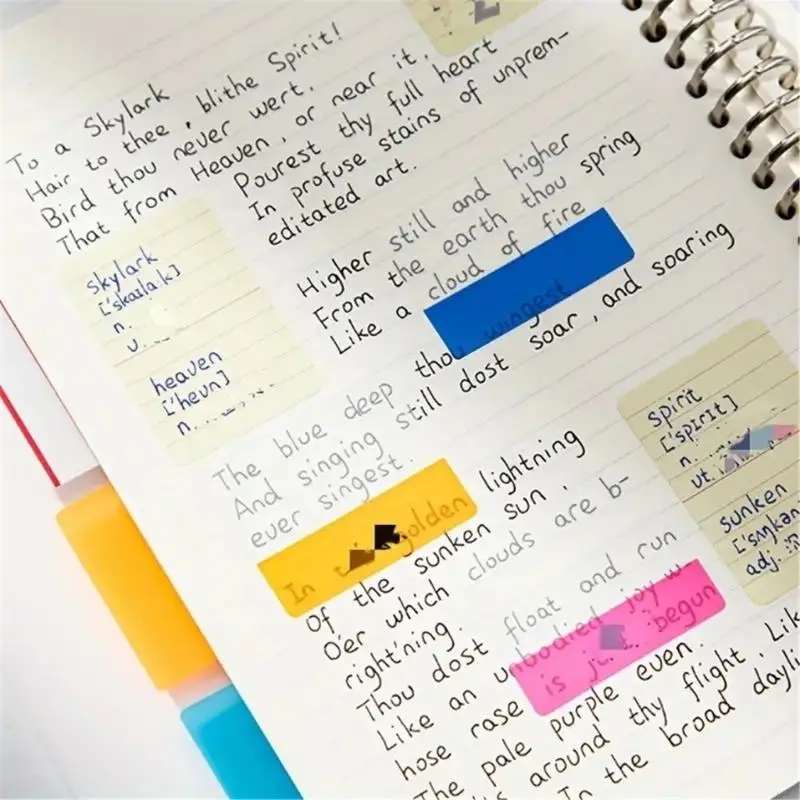 To a Skylark
Hair to thee, blithe Spirit!
Bird thou never wert.
That from Heaven, or near it.
Pourest thy full heart
In profuse stains of unprem-
editated art.
Higher still and higher
From the earth thou spring
Like a cloud of fire
The blue deep thou wingest
And singing still dost soar, and soaring
ever singest.
In golden lightning
Of the sunken sun.
O'er which clouds are b-
right'ning.
Thou dost float and run
Like an unbodied joy w
hose rase is begun
The pale purple even.
around thy flight. Lik
In the broad dayli
skylark
n.
heaven
['hevn]
n.
spirit
['spɪrɪt]
n.
vt.
sunken
adj.